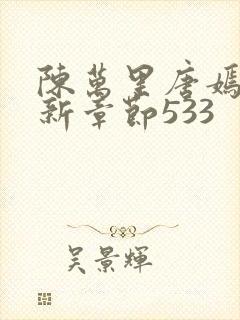 陳萬里唐嫣
新章節533
吳景輝